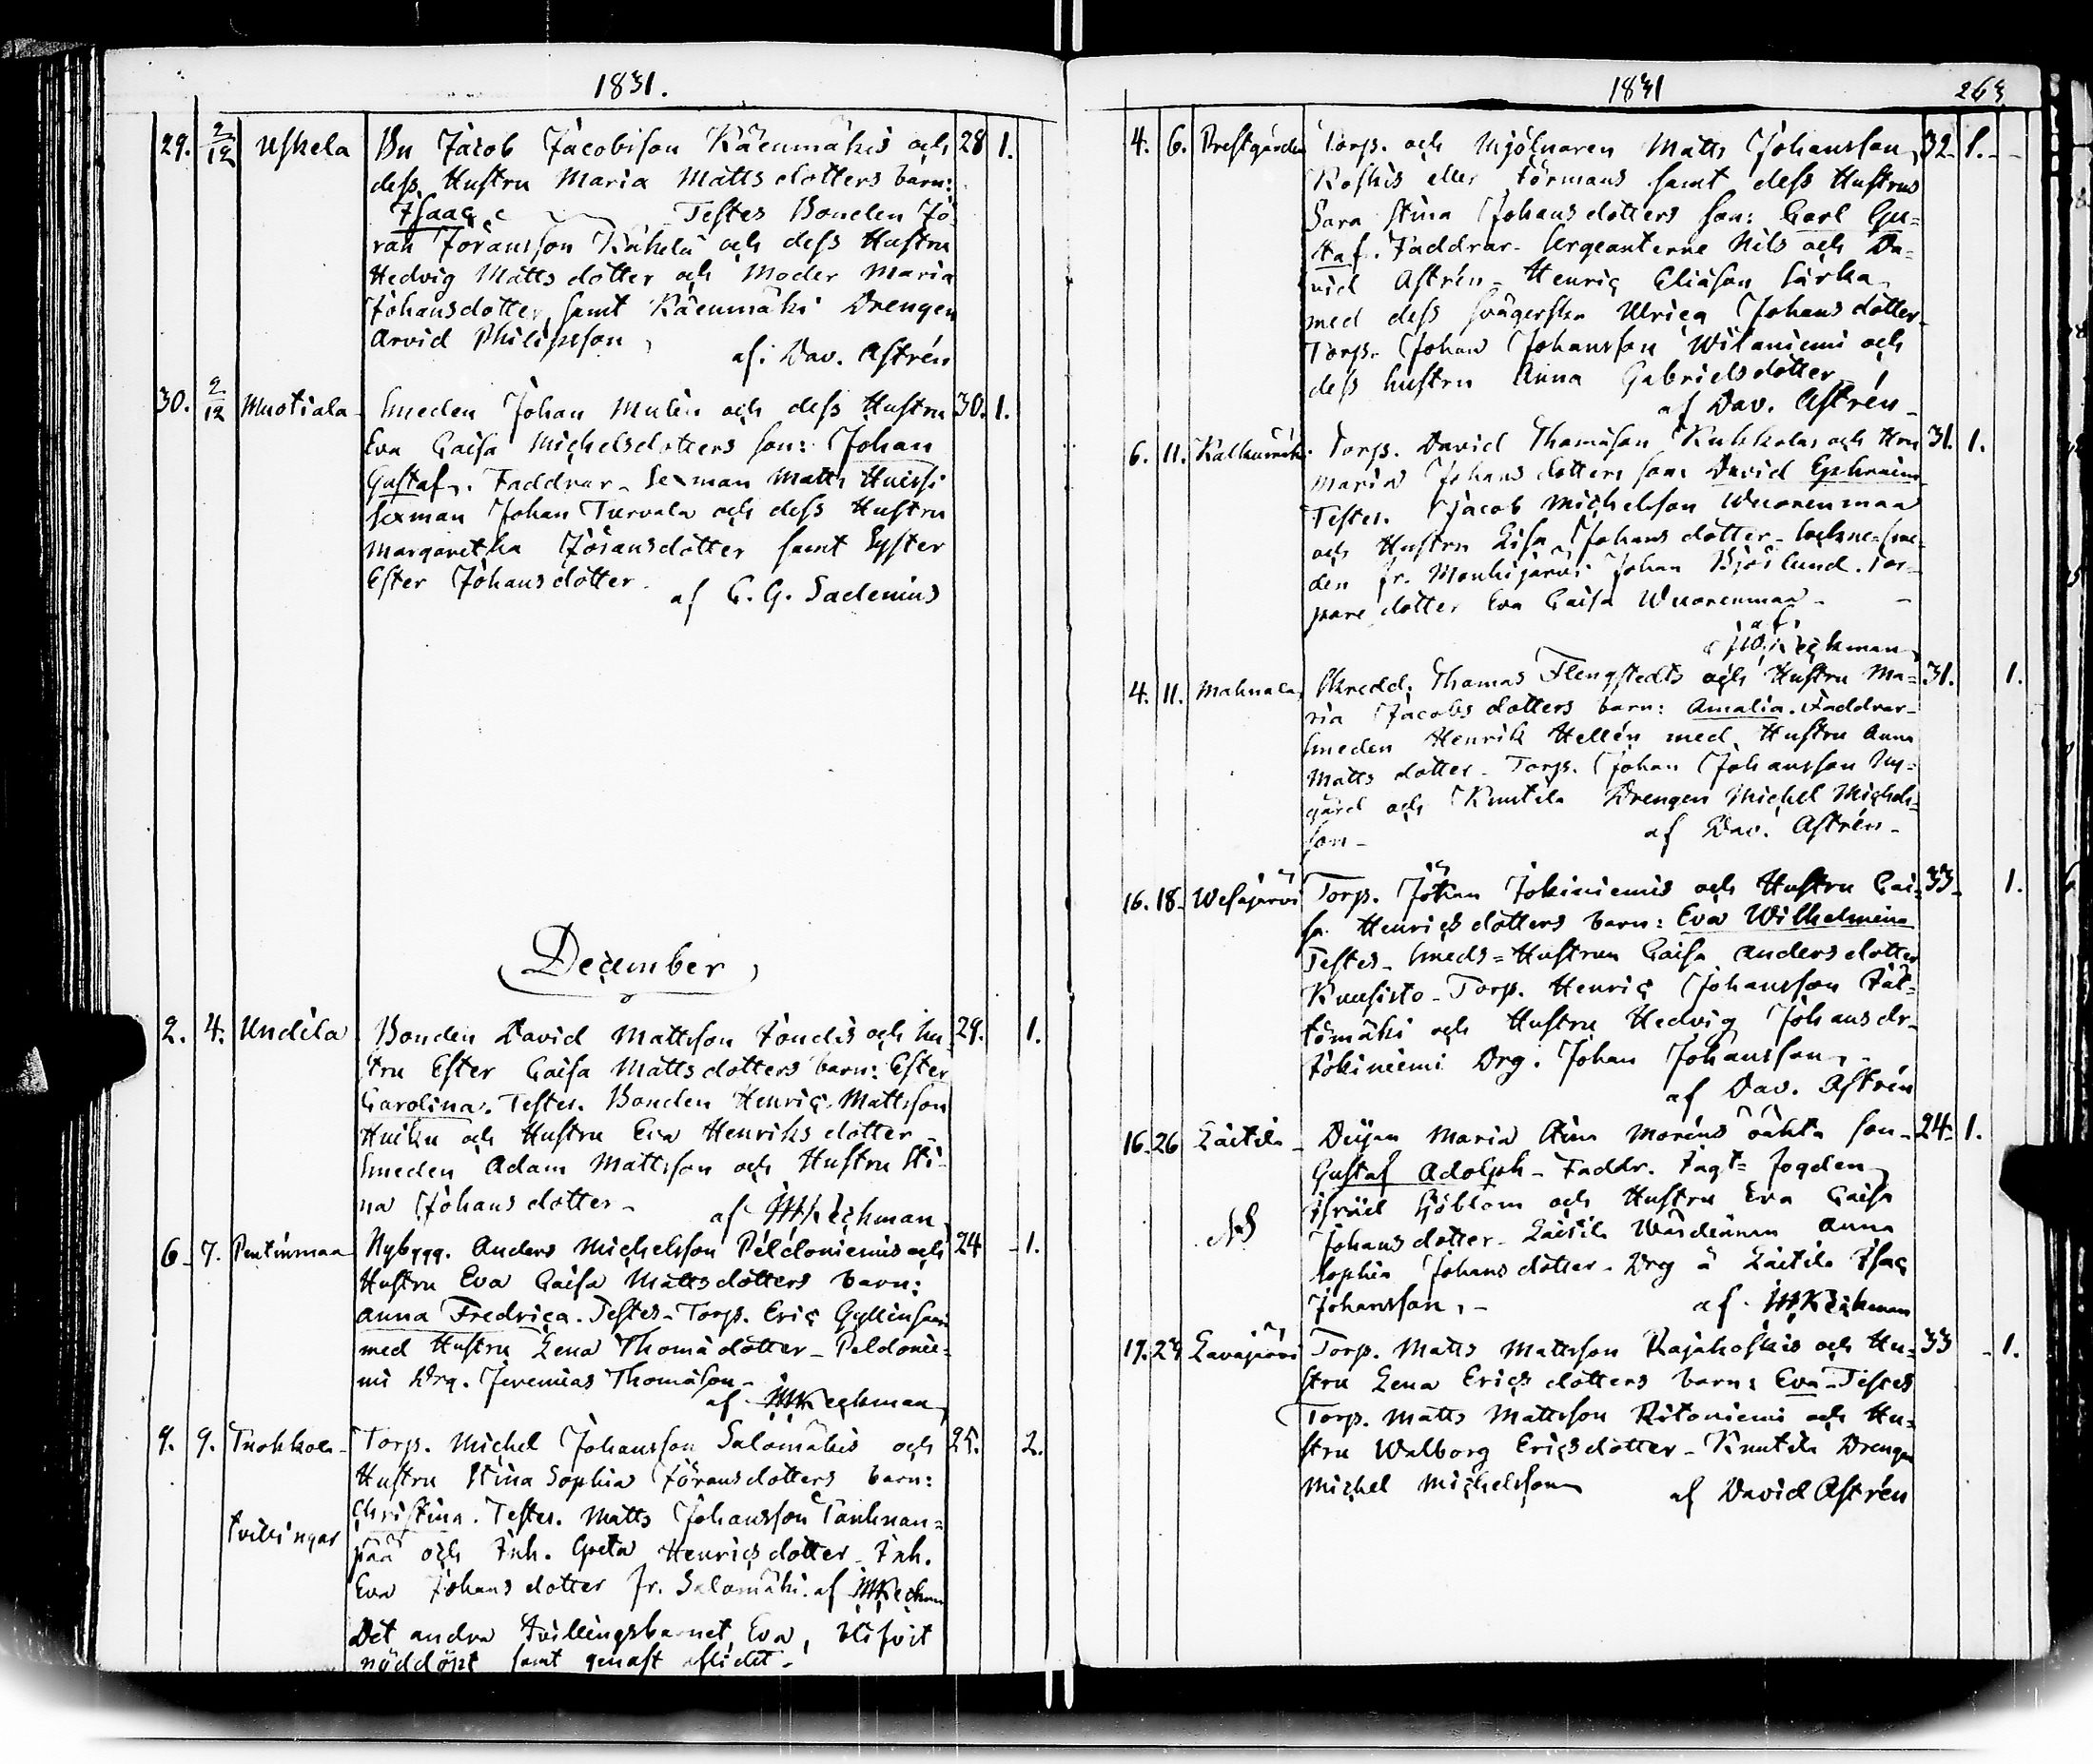 1831.
29. 2/12 Uskela Bn Jacob Jacobsson Käenmäkis och 28 1.
dess Hustru Maria Matts dotters barn:
Isaac Testes Bonden Jö-
ran Jöransson och dess Hustru
Hedvig Matts dotter och Moder Maria
Johansdotter, samt Käenmäki Drengen
Arvid Philipsson,
af: Dav. Astrén
30. 2/12 Muotiala Smeden Johan Mulin och dess Hustru 30. 1.
Eva Caisa Michelsdotters son: Johan
Gustaf. Faddrar - Sexman Matts Huissi
Sexman Johan Turvala och dess Hustru
Margaretha Jöransdotter samt Syster
Ester Johansdotter.
af C. G. Sadenius
December
2. 4. Undila Bonden David Mattsson och hu- 29. 1.
stru Ester Caisa Mattsdotters barn: Ester
Carolina. Testes. Bonden Henric Mattsson
och Hustru Eva Henriks dotter -
Smeden Adam Mattsson och Hustru Sti-
na Johans dotter -
af
6. 7. Pentinmaa Nybygg. Anders Michelsson Peldoniemis och 24 1.
Hustru Eva Caisa Mattsdotters barn:
Anna Fredrica. Testes - Torp. Eric
med Hustru Lena Thomä dotter - Peldonie-
mi Drg. Jeremias Thomäson -
af
9. 9. Torp. Michel Johansson Salomäkis och 25. 2.
Hustru Stina Sophia Jöransdotters barn:
Christina. Testes. Matts Johansson Tanhuan-
pää och Inh. Greta Henricsdotter - Inh.
tvillingar
Eva Johans dotter fr. Salomäki. af
Det andra tvillingsbarnet, Eva, blifvit
nöddöpt samt genast aflidit -
1831 263
4. 6. Prestgården Torp. och Mjölnaren Matts Johansson 32. 1.
Koskis eller Törmäns samt dess Hustrus
Sara Stina Johans dotters son: Carl Gu-
staf. Faddrar - Sergeanterne Nils och Da-
vid Astrén - Henric Eliäson Särkä
med dess Svägerska Ulrica Johans dotter -
Torp. Johan Johansson Witaniemi och
dess hustru Anna Gabrielsdotter
af Dav. Astrén -
6. 11. Torp. David Thomäson Kuhkolas och Hru 31. 1.
Maria Johans dotters son: David Ephraim
Testes. Jacob Michelsson Wuorenmaa
och Hustru Lisa Johans dotter - Sockne-sme-
den fr. Mouhijärvi Johan Björlund. Tor-
pare dotter Eva Caisa Wuorenmaa -
af
4. 11. Mahnala Skredd. Thomas Flengstedts och Hustru Ma- 31. 1.
ria Jacobs dotters barn: Amalia. Faddrar -
Smeden Henrik Hellén med Hustru Anna
Matts dotter - Torp. Johan Johansson Ny-
gård och Knutila Drengen Michel Michels-
son -
af Dav. Astrén -
16. 18. Wesajärvi Torp. Johan Jokiniemis och Hustru Cai- 33 1.
sa Henricsdotters barn: Eva Wilhelmina
Testes - Smeds-Hustrun Caisa Anders dotter
Kuusisto - Torp. Henric Johansson
och Hustru Hedvig Johans dr.
Jokiniemi Drg. Johan Johansson,
af Dav. Astrén
16. 26 Laitila Pigan Maria Stina Moréns oäkta son 24 1.
Gustaf Adolph - Faddr. Jagt-fogden
Israel Sjöblom och Hustru Eva Caisa
Johans dotter - Laitila Wärdinnan Anna
Sophia Johans dotter - Drg å Laitila Isac
Johansson, -
af
17. 27 Lavajärvi Torp. Matts Mattsson Rajakoskis och Hu- 33 1.
stru Lena Erics dotters barn: Eva - Testes
Torp. Matts Mattsson Ritoniemi och Hu-
stru Walborg Ericsdotter - Knutila Drengen
Michel Michelsson
af David Astrén